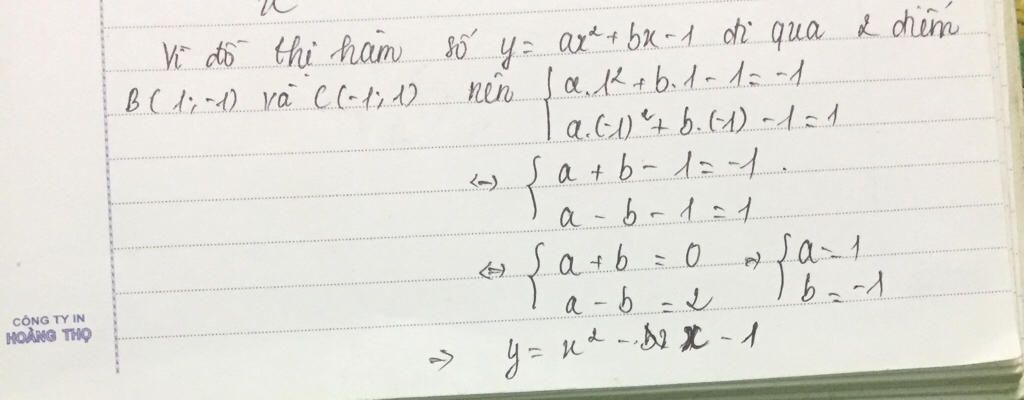 Vì đồ thị hàm số y = ax² + bx - 1 đi qua 2 điểm
B(1;-1) và C(-1;1) nên { a.1² + b.1 - 1 = -1
a.(-1)² + b.(-1) - 1 = 1
⇔ { a + b - 1 = -1
a - b - 1 = 1
⇔ { a + b = 0 ⇒ { a = 1
a - b = 2 b = -1
⇒ y = x² - x - 1
CÔNG TY IN
HOÀNG THỌ